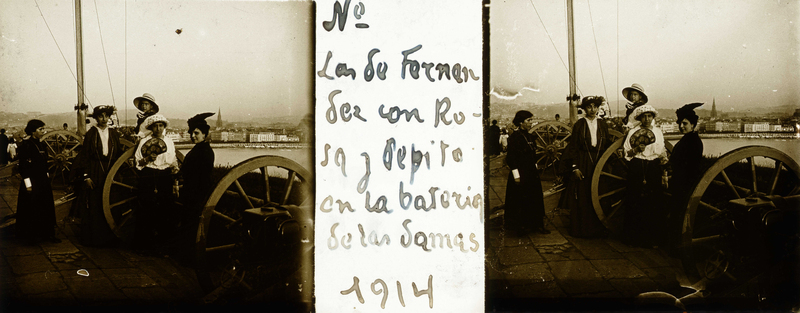 Nº
Las de Fernan
dez con Ro-
sa y Pepita
en la bateria
de las Damas
1914